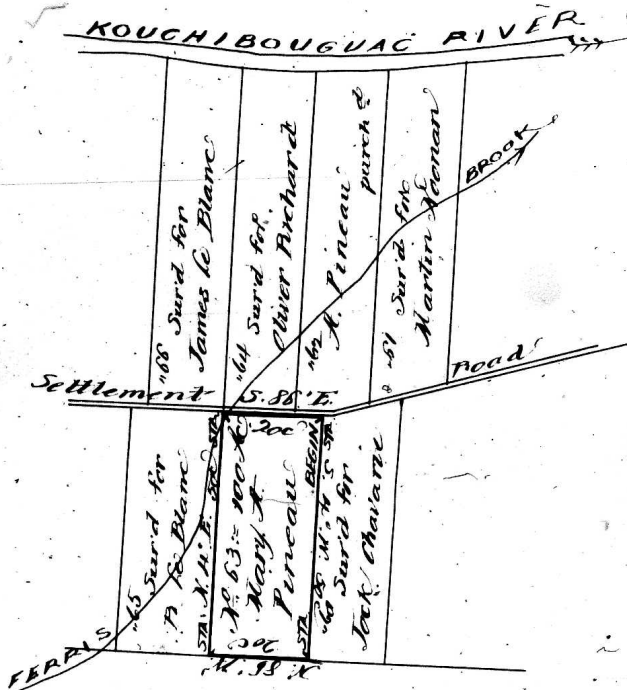 KOUCHIBOUGUAC RIVER
"66 Sur'd for
James Le Blanc
"64 Sur'd for
Oliver Richard
"62
A. Pineau
purch'd
"61 Sur'd for
Martin Noonan
BROOK
Settlement
S. 86° E.
Road
"65 Sur'd for
Le Blanc
STA. N. 4° E. 50C STA.
20C
No 63 = 100 Ac
Mary A.
Pineau
20C
BEGIN
STA.
S. 4° W.
STA.
"60 Sur'd for
Jock Chavarie
N. 86° W.
FERRIS